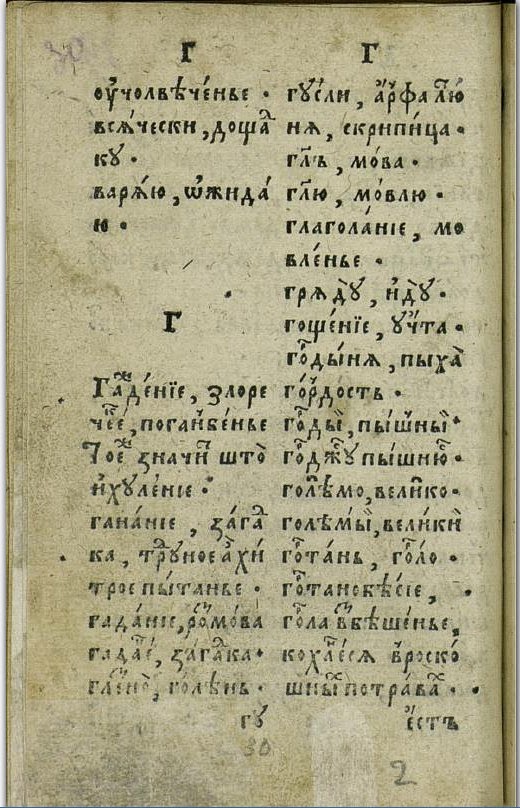 Г Г
оу҆чолвѣче́нье ·
вся́чески, доща̾
ку ·
варѧ́ю, ѡ҆жида́
ю ·
Г
Гаⷤде́нїе, злоре
че́е, погаⷩ҇бе́нье
то́е значи́т што̀
и҆ хуле́нїе ·
гана́нїе, за́гаⷣ
ка, трⷣуное а хи
трое пы́танье ·
гада́нїе, роⷥмо́ва
гада́е, за́гаⷣка ·
глено̀, го́лѣнь ·
гу
гу́сли, а҆́рфа лю
ня, скрипи́ца ·
глъ, мо́ва ·
глю, мо́влю ·
глагола́нїе, мо
вле́нье ·
гряду̀, и҆ду̀ ·
гоще́нїе, у҆́чта ·
гоⷬды́ня, пыха̀
го́рдость ·
гоⷬды́й, пы́шный ·
гоⷬджу пышню ·
голѣ́мо, вели́ко ·
голѣ́мый, вели́кий
гоⷬта́нь, го́ⷬло ·
гоⷬтанобѣ́сїе,
гоⷬла вбѣше́нье,
коха́еся вроско́
шны́ⷯ потра́ваⷯ ·
е҆́стъ
30
2